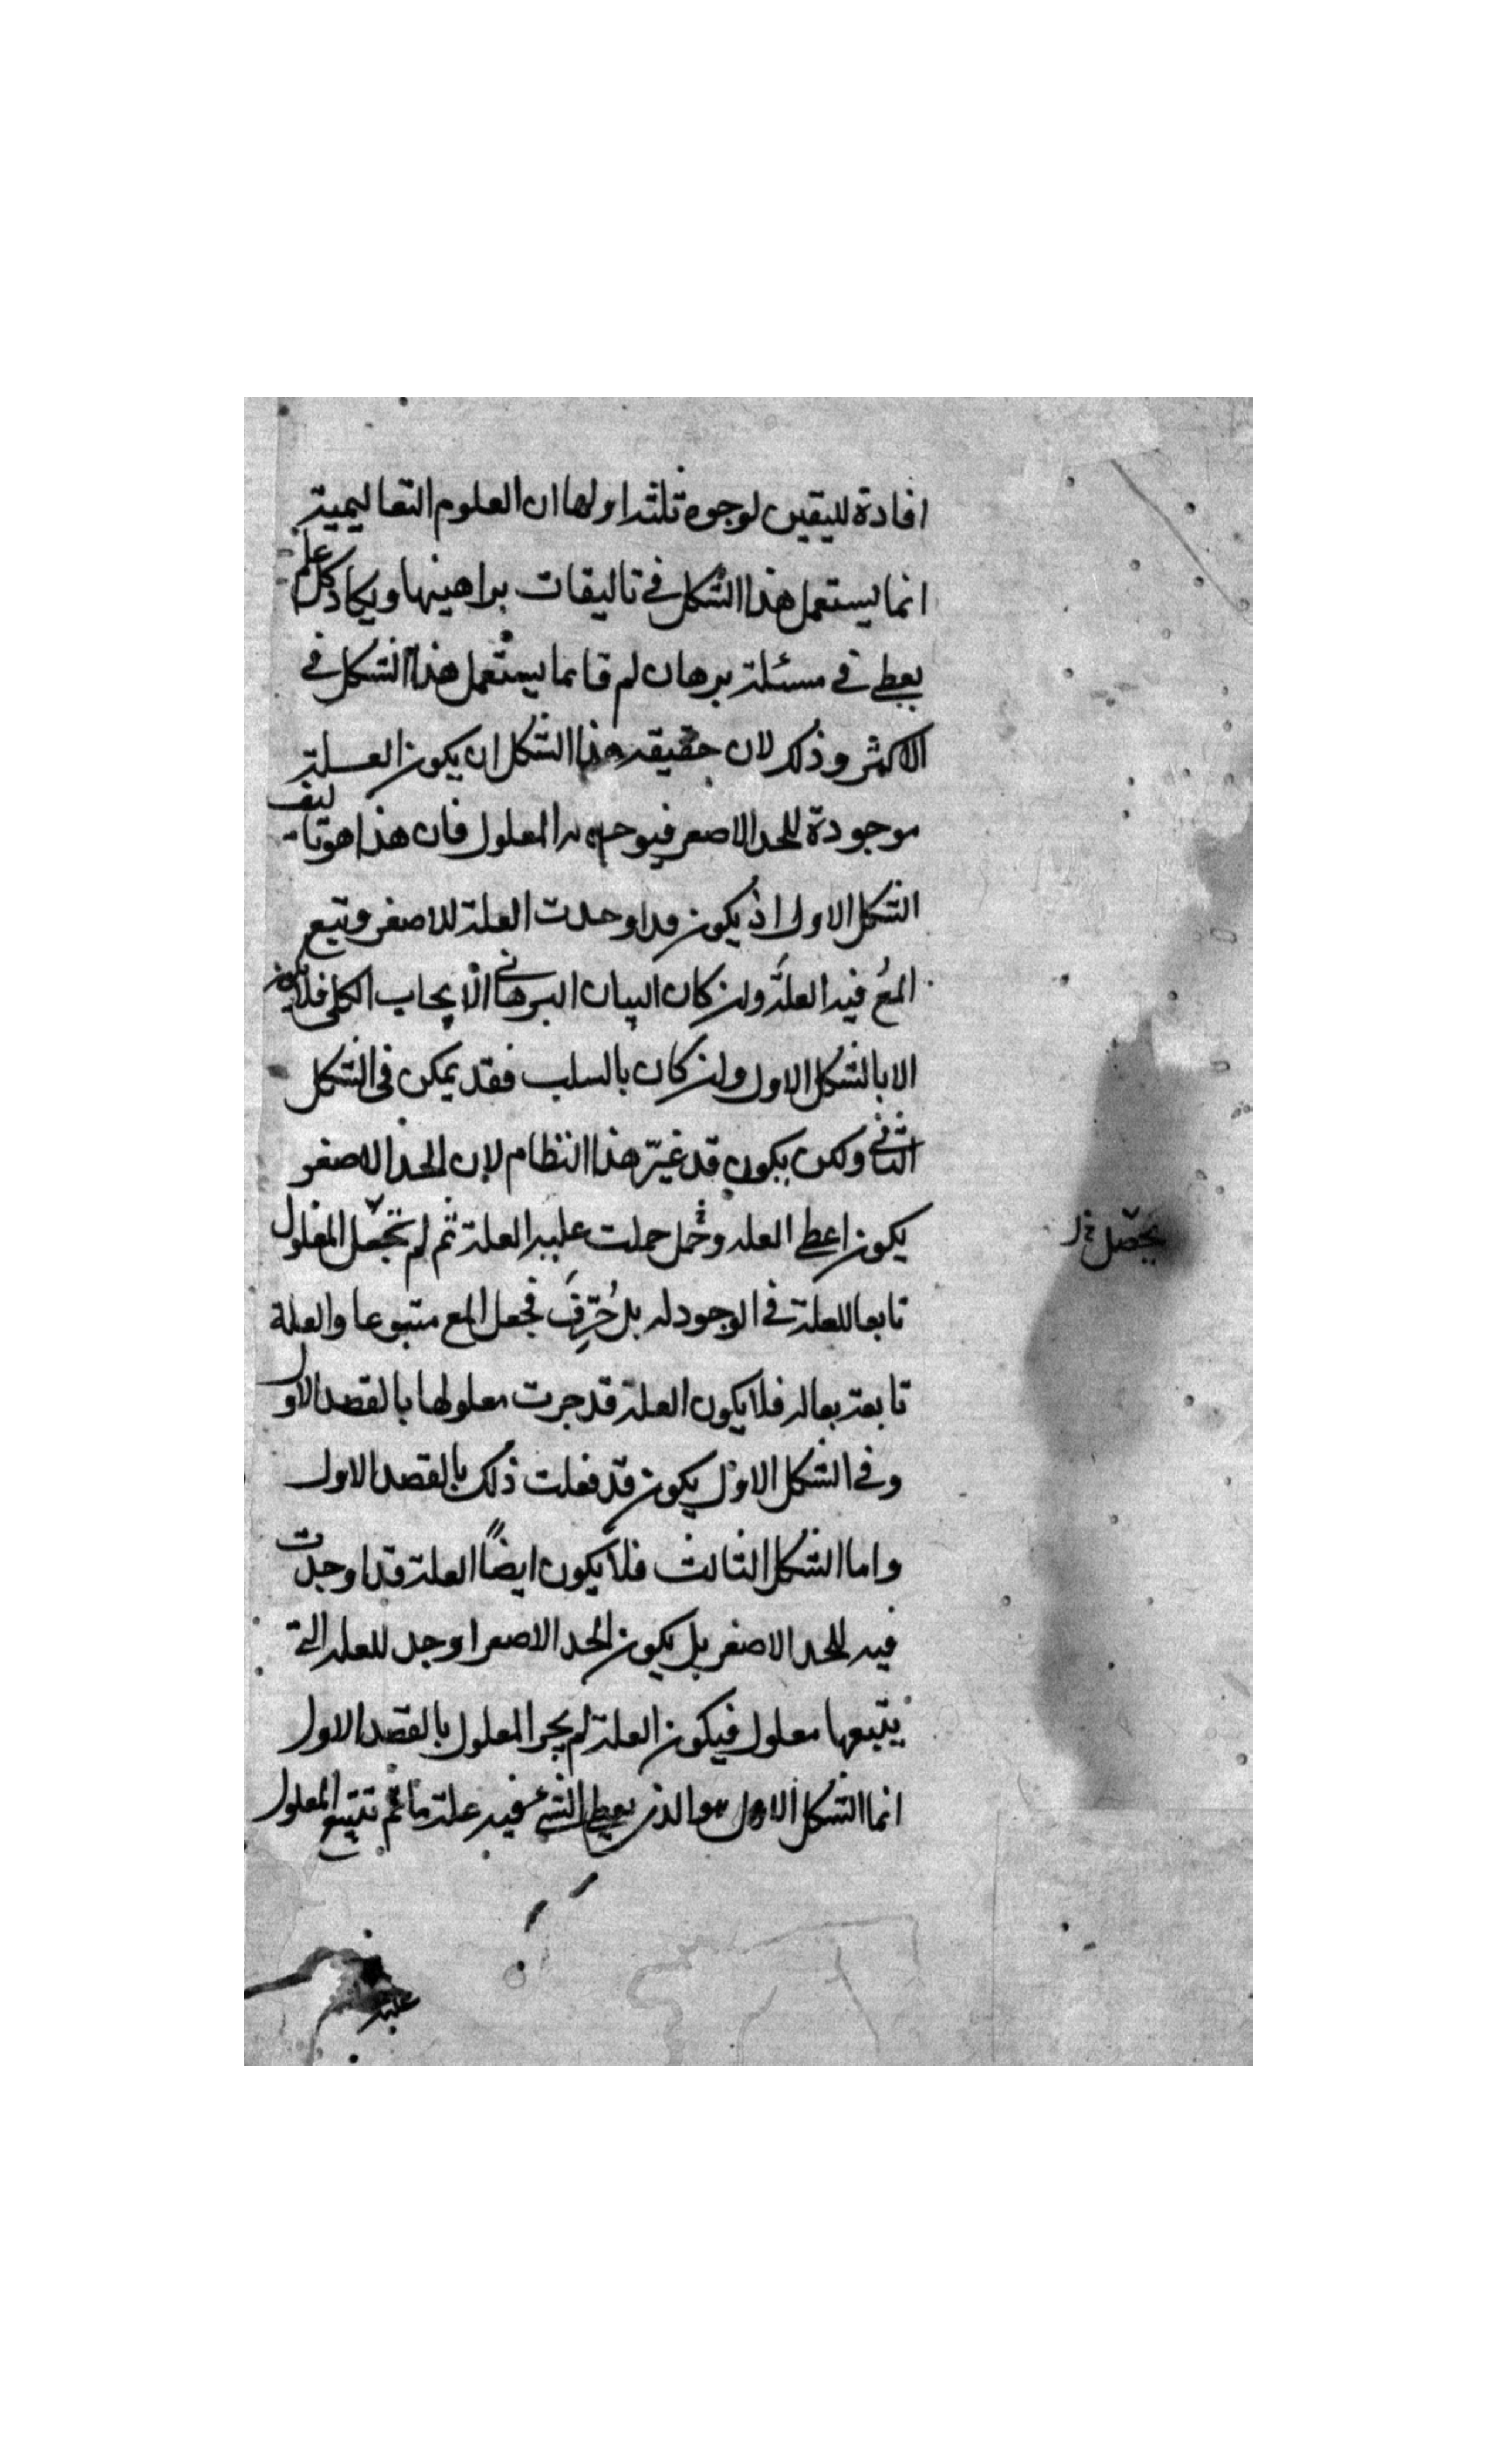 افادة لليقين لوجوه ثلثه اولها ان العلوم التعاليمية
انما يستعمل هذا الشكل في تاليفات براهينها ويكاد كل علم
يعطى في مسئلة برهان لم فانما يستعمل هذا الشكل في
الاكثر وذلك لان حقيقه هذا الشكل ان يكون العلة
موجودة للحد الاصغر فيوجد له المعلول فان هذا هو تاليف
الشكل الاول اذ يكون قد اوجدت العلة للاصغر وتبع
المع فيه العلة ولن كان البيان البرهانى الايجاب الكلى فلا يكون
الا بالشكل الاول ولن كان بالسلب فقد يمكن فى الشكل
الثانى ولكن يكون قد غيّر هذا النظام لان الحد الاصغر
يكون اعطى العله وحمل حملت عليه العلة ثم لم تجعل المعلول
يحصل خ ل
تابعا للعلة فى الوجود له بل حُرِّف فجعل المع متبوعا والعلة
تابعة بعاله فلا يكون العلة قد جرت معلولها بالقصد الاول
وفى الشكل الاول يكون قد فعلت ذلك بالقصد الاول
واما الشكل الثالث فلا يكون ايضاً العلة قد اوجدت
فيه للحد الاصغر بل يكون الحد الاصغر اوجد للعله التى
يتبعها معلول فيكون العلة لم يجر المعلول بالقصد الاول
انما الشكل الاول هو الذى يعطى الشئ فيه علة ما ثم تتبع المعلول